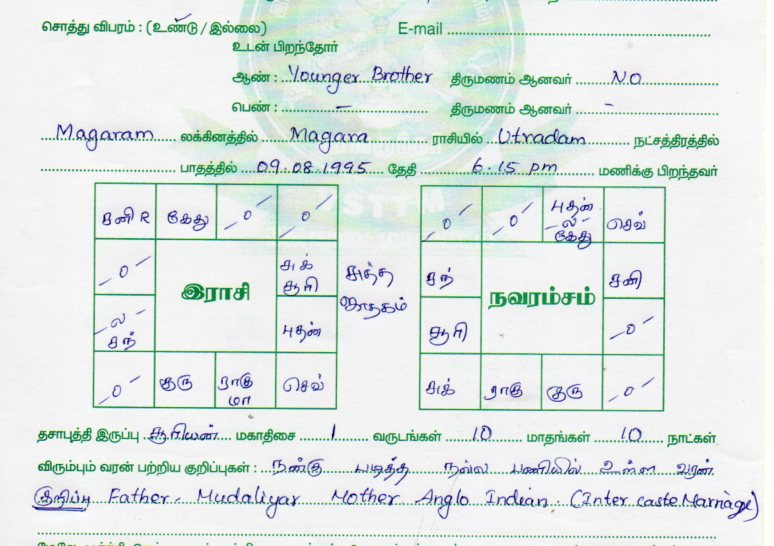 சொத்து விபரம் : (உண்டு / இல்லை) E-mail
உடன் பிறந்தோர்
ஆண் : Younger Brother திருமணம் ஆனவர் NO
பெண் : – திருமணம் ஆனவர் –
Magaram லக்கினத்தில் Magara ராசியில் Utradam நட்சத்திரத்தில்
பாதத்தில் 09.08.1995 தேதி 6.15 pm மணிக்கு பிறந்தவர்
சனி R கேது -0- -0-
-0- சுக் சூரி
இராசி
-ல- சந் புதன்
-0- குரு ராகு மா செவ்
சுத்த ஜாதகம்
-0- -0- புதன் -ல- கேது செவ்
சந் சனி
நவரம்சம்
சூரி -0-
சுக் ராகு குரு -0-
தசாபுத்தி இருப்பு சூரியன் மகாதிசை 1 வருடங்கள் 10 மாதங்கள் 10 நாட்கள்
விரும்பும் வரன் பற்றிய குறிப்புகள் : நன்கு படித்த நல்ல பணியில் உள்ள வரன்
குறிப்பு Father - Mudaliyar Mother Anglo Indian (Inter caste Marriage)